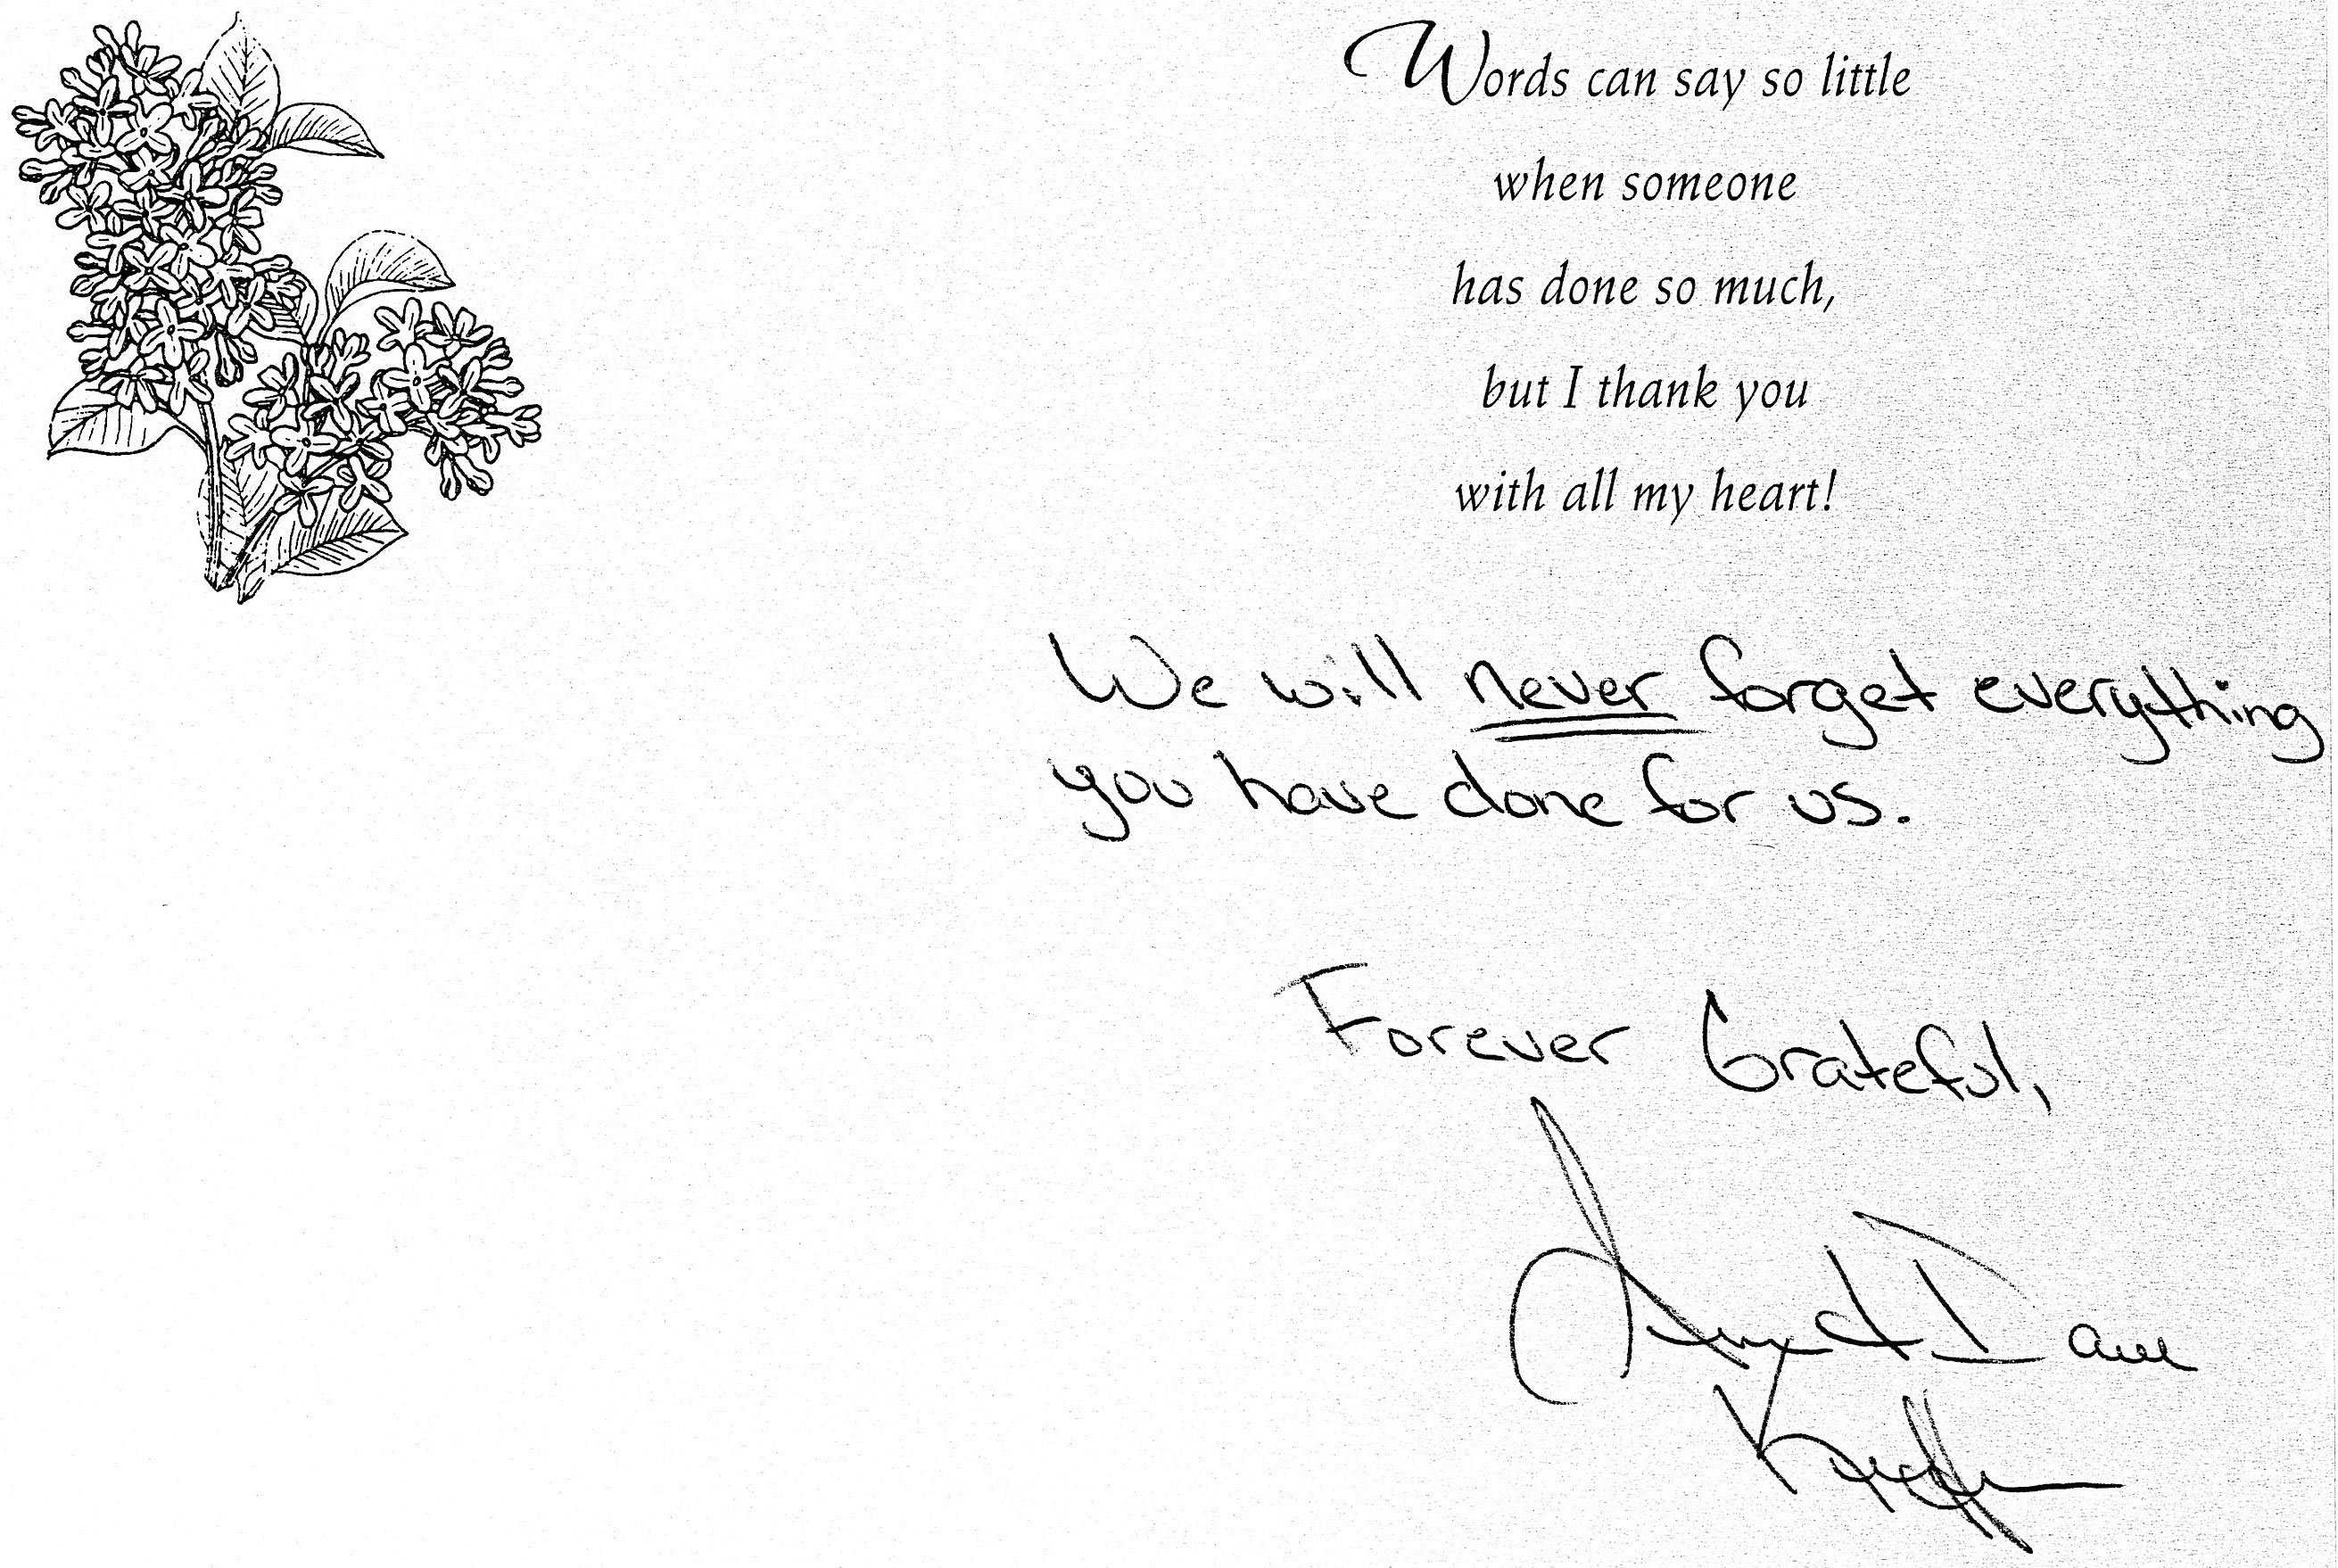 Words can say so little
when someone
has done so much,
but I thank you
with all my heart!
We will never forget everything
you have done for us.
Forever Grateful,
Dave